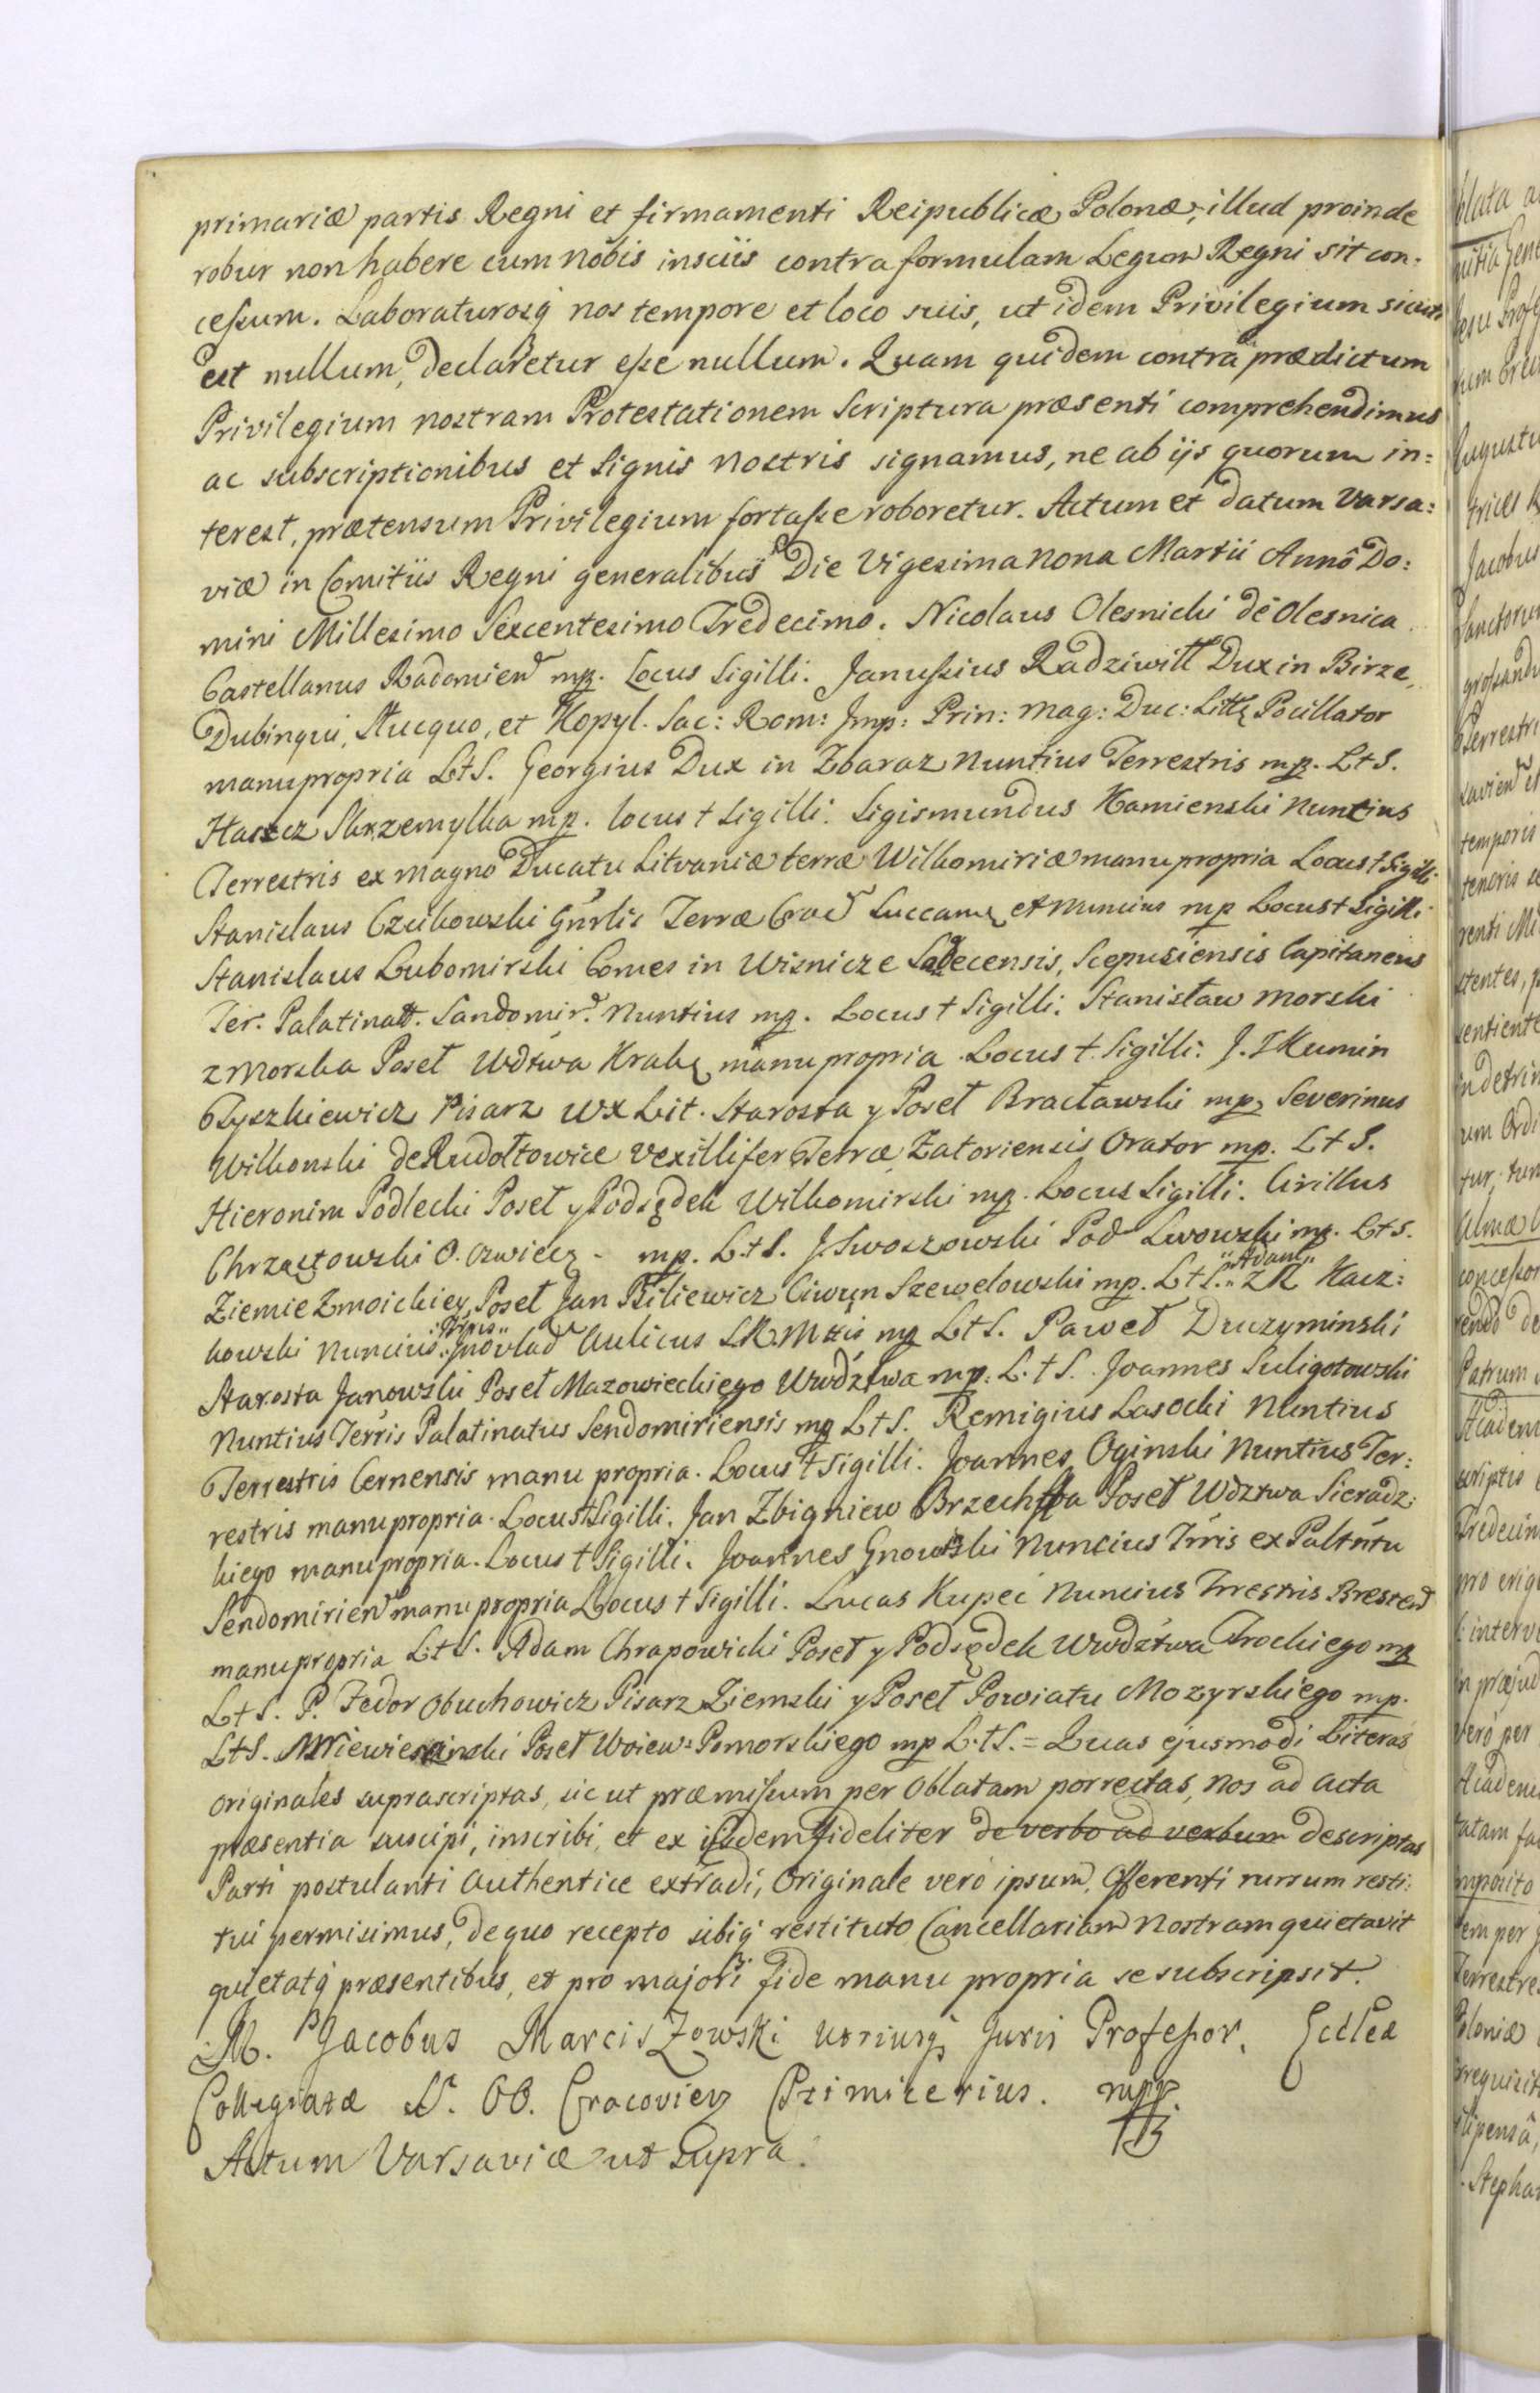 primariæ partis Regni et firmamenti Reipublicæ Polonæ, illud proinde
robur non habere cum nobis insciis contra formulam Legum Regni sit con:
ceſsum. Laboraturosq́ nos tempore et loco suis, ut idem Privilegium sicuti
est nullum, declaretur eſse nullum. Quam quidem contra prædictum
Privilegium nostram Protestationem Scriptura præsenti comprehendimus
ac subscriptionibus et Signis nostris signamus, ne ab ijs quorum in:
terest, prætensum Privilegium fortaſse roboretur. Actum et datum Varsa:
viæ in Comitiis Regni generalibus Die Vigesima nona Martii Annô Do:
mini Millesimo Sexcentesimo Tredecimo. Nicolaus Olesnicki de Olesnica
Castellanus Radomien mp. Locus Sigilli. Januſsius Radziwiłł Dux in Birze,
Dubinqui, Slucquo, et Kopyl. Sac: Rom: Imp: Prin: Mag: Duc: Litt Pocillator
manu propria L+S. Georgius Dux in Zbaraz Nuntius Terrestris mp. L+S.
Skrzemylka mp. locus + Sigilli. Sigismundus Kamienski Nuntius
Terrestris ex magno Ducatu Litvaniæ terræ Wilkomiriæ manu propria Locus + Sigilli
Stanislaus Czukowski Terræ Crac Succam et nuncius mp Locus + Sigilli
Stanislaus Lubomirski Comes in Wisnicze Sadecensis, Scepusiensis Capitaneus
Ter. Palatinatt. Sandomir. Nuntius mp. Locus + Sigilli. Stanisław Morski
z Morska Poseł Wdztwa Krak manu propria Locus + Sigilli. J. S Kumin
Tyszkiewicz Pisarz WX Lit. Starosta y Poseł Bracławski mp Severinus
Wilkonski de Rudołtowice Vexillifer Terræ Zatoriensis Orator mp. L+S.
Hieronim Podlecki Poseł y Podsędek Wilkomirski mp. Locus Sigilli. Cirillus
Chrząstowski O. Oswiecz mp. L+S. J Swoszowski Pod Lwowski mp. L+S.
Ziemie Zmoickiey Poseł Jan Biliewicz Ciwun Szewelowski mp. L+S. „Adam„ ZR Kacz:
kowski Nuncius „Trris„ Inovlad Aulicus S.R.Mtis mp L+S. Paweł Druzyminski
Starosta Janowski Poseł Mazowieckiego Wwdztwa mp. L+S. Joannes Suligotowski
Nuntius Terris Palatinatus Sendomiriensis mp L+S. Remigius Lasocki Nuntius
Terrestris Cernensis manu propria. Locus + Sigilli. Joannes Oginski Nuntius Ter:
restris manu propria. Locus + Sigilli. Jan Zbigniew Poseł Wdztwa Sieradz:
kiego manu propria. Locus + Sigilli. Joannes Gnowski Nuncius Trris ex Paltntu
Sendomirien manu propria Locus + Sigilli. Lucas Kupeć Nuncius Trrestris Bresten
manu propria L+S. Adam Chrapowicki Poseł y Podsędek Wwdztwa Trockiego mp
L+S. P. Fedor Obuchowicz Pisarz Ziemski y Poseł Powiatu Mozyrskiego mp.
L+S. Poseł Woiew: Pomorskiego mp L+S. = Quas ejusmodi Literas
originales suprascriptas, sic ut præmiſsum per Oblatam porrectas, nos ad Acta
præsentia suscipi, inscribi, et ex iisdem fideliter de verbo ad verbum descriptas
Parti postulanti Authentice extradi, Originale vero ipsum, Offerenti rursum resti:
tui permisimus, de quo recepto sibiq́ restituto Cancellariam Nostram quietavit
quietatq́ præsentibus, et pro majori fide manu propria se subscripsit.
M. Jacobus Marciszowski utriusq́ Juris Profeſsor, Eccleæ
Collegiatæ S. OO. Cracovien Primicerius. mpp.
Actum Varsaviæ ut supra.